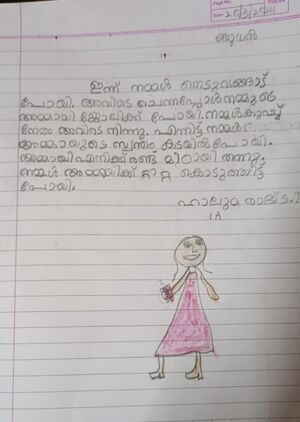 Page No.:
YOUVA
Date: 20/3/2024
ബുധൻ
ഇന്ന് നമ്മൾ നെടുമങ്ങാട്
പോയി. അവിടെ ചെന്നപ്പോൾ നമ്മുടെ
അമ്മായി ജോലിക്ക് പോയി. നമ്മൾ കുറച്ച്
നേരം അവിടെ നിന്നു. പിന്നിട്ട് നമ്മൾ
അമ്മായുടെ സ്വന്തം കടയിൽ പോയി.
അമ്മായി എനിക്ക് രണ്ട് മിഠായി തന്നു.
നമ്മൾ അമ്മായിക്ക് റ്റാറ്റ കൊടുത്തിട്ട്
പോയി.
1 A